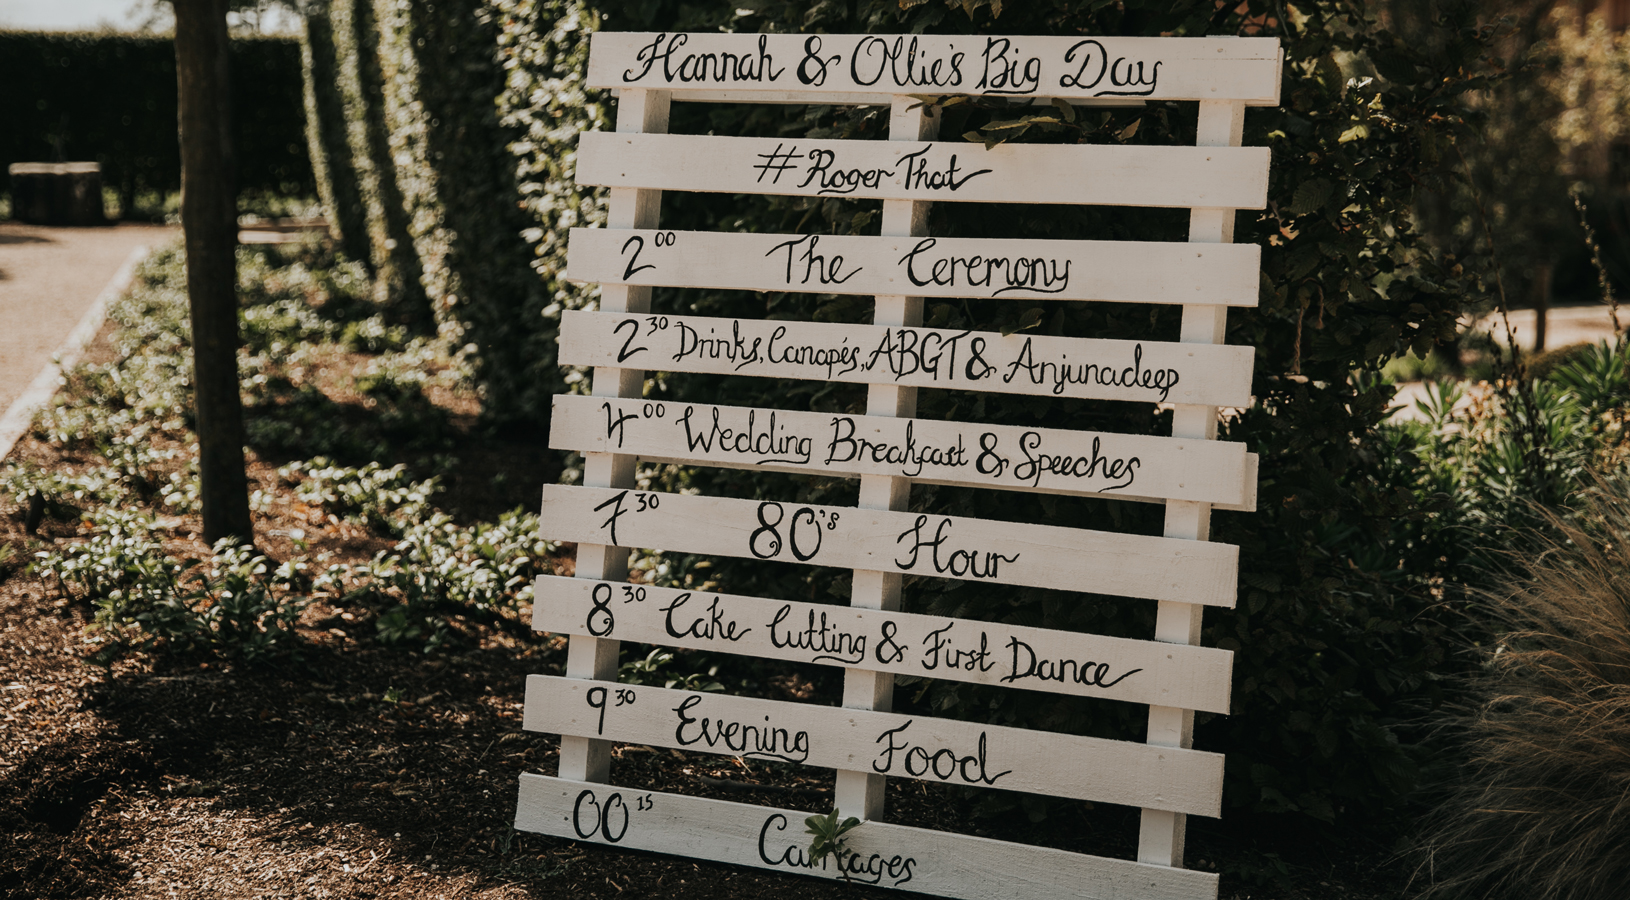 Hannah & Ollie's Big Day
#Roger That
2 00 The Ceremony
2 30 Drinks, Canapés, ABGT & Anjunadeep
4 00 Wedding Breakfast & Speeches
7 30 80's Hour
8 30 Cake Cutting & First Dance
9 30 Evening Food
00 15 Carriages